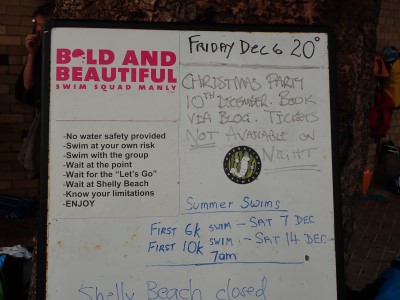 BOLD AND
BEAUTIFUL
SWIM SQUAD MANLY
-No water safety provided
-Swim at your own risk
-Swim with the group
-Wait at the point
-Wait for the "Let's Go"
-Wait at Shelly Beach
-Know your limitations
-ENJOY
FRIDAY DEC 6 20°
CHRISTMAS PARTY
10TH DECEMBER. BOOK
VIA BLOG. TICKETS
NOT AVAILABLE ON
NIGHT.
Summer Swims
FIRST 6K SWIM - SAT 7 DEC
FIRST 10K SWIM - SAT 14 DEC
7am
Shelly Beach closed